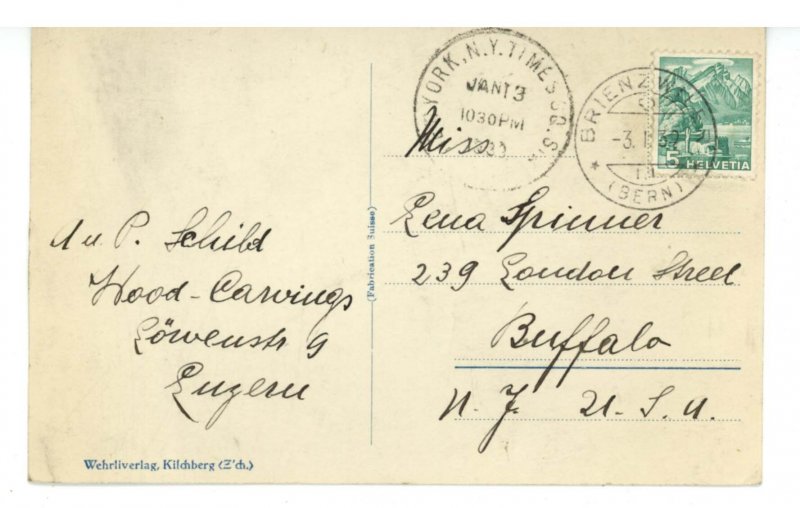 YORK, N.Y. TIMES SQ. S
JAN 13
1030 PM
BRIENZW
-3. I. 39
(BERN)
5 HELVETIA
Miss
Lena Spinner
239 London Street
Buffalo
N. Y. U.S.A.
A u P. Schild
Wood-Carvings
Löwenstr 9
Luzern
(Fabrication Suisse)
Wehrliverlag, Kilchberg (Z'ch.)